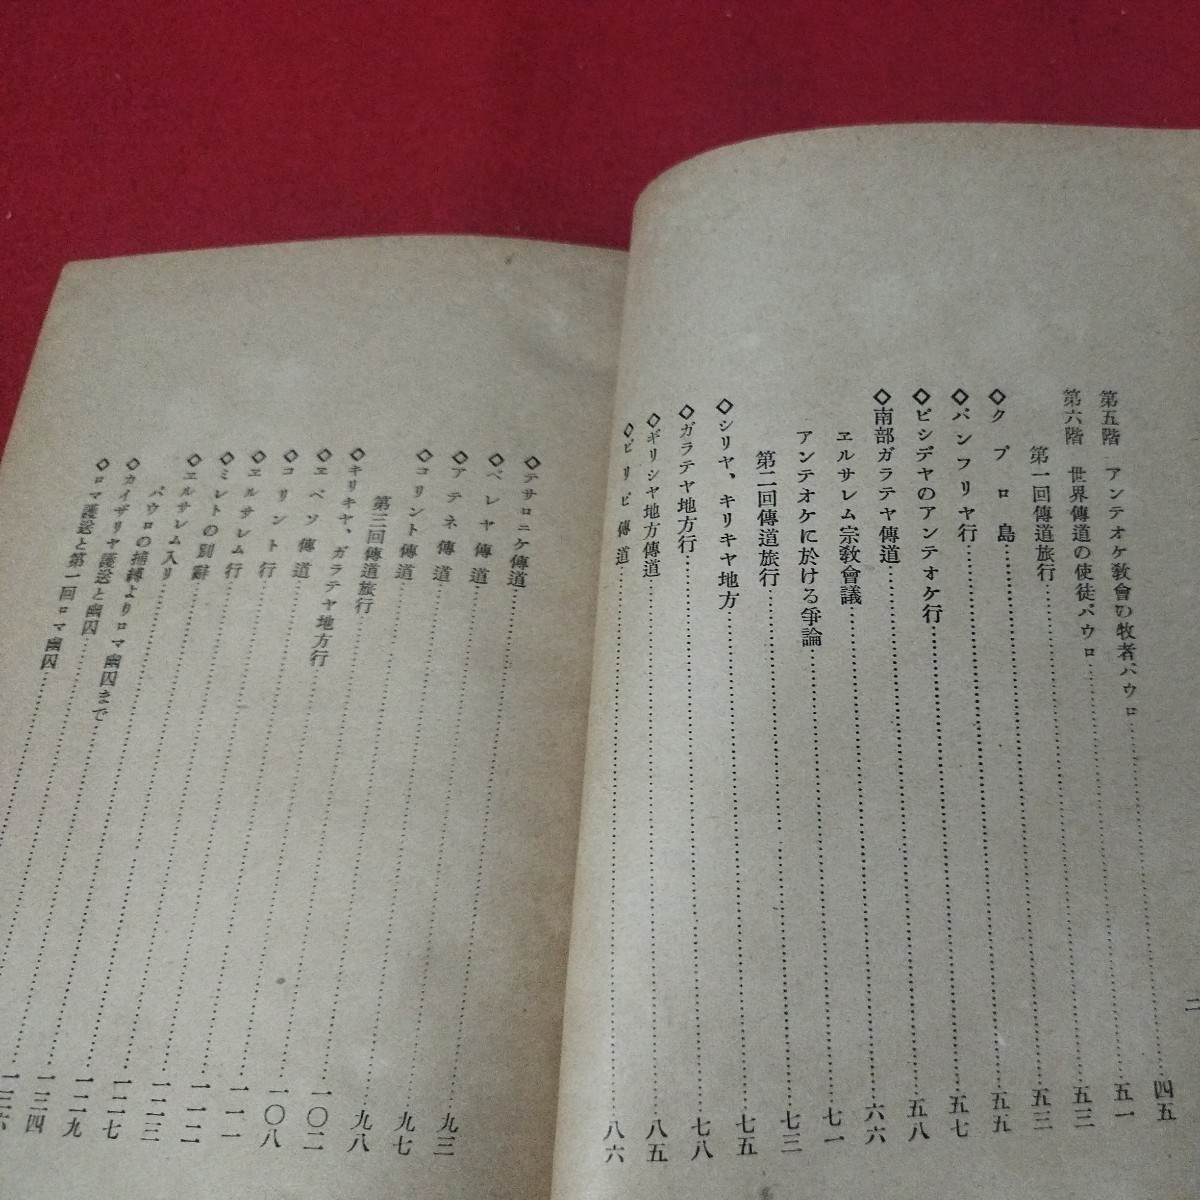 二
第五階 アンテオケ敎會の牧者パウロ……四五
第六階 世界傳道の使徒パウロ……五一
第一回傳道旅行……五三
◇クプロ島……五三
◇パンフリヤ行……五五
◇ピシデヤのアンテオケ行……五七
◇南部ガラテヤ傳道……五八
ヱルサレム宗敎會議……六六
アンテオケに於ける爭論……七一
第二回傳道旅行……七三
◇シリヤ、キリキヤ地方……七五
◇ガラテヤ地方行……七八
◇ギリシヤ地方傳道……八五
◇ピリピ傳道……八六
◇テサロニケ傳道……九三
◇ベレヤ傳道……九七
◇アテネ傳道……九八
◇コリント傳道……一〇二
第三回傳道旅行……一〇八
◇キリキヤ、ガラテヤ地方行……一一一
◇エペソ傳道……一一二
◇コリント行……一二三
◇ヱルサレム行……一二七
◇ミレトの別辭……一二九
◇ヱルサレム入り……一三四
パウロの捕縛よりロマ幽囚まで……一三六
◇カイザリヤ護送と幽囚……
◇ロマ護送と第一回ロマ幽囚……